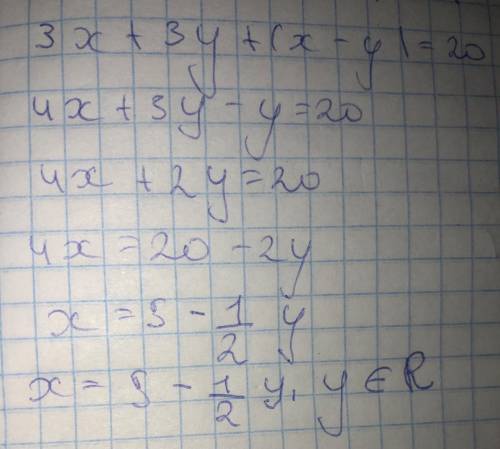 3x + 3y + (x - y) = 20
4x + 3y - y = 20
4x + 2y = 20
4x = 20 - 2y
x = 5 - 1/2 y
x = 5 - 1/2 y, y ∈ R